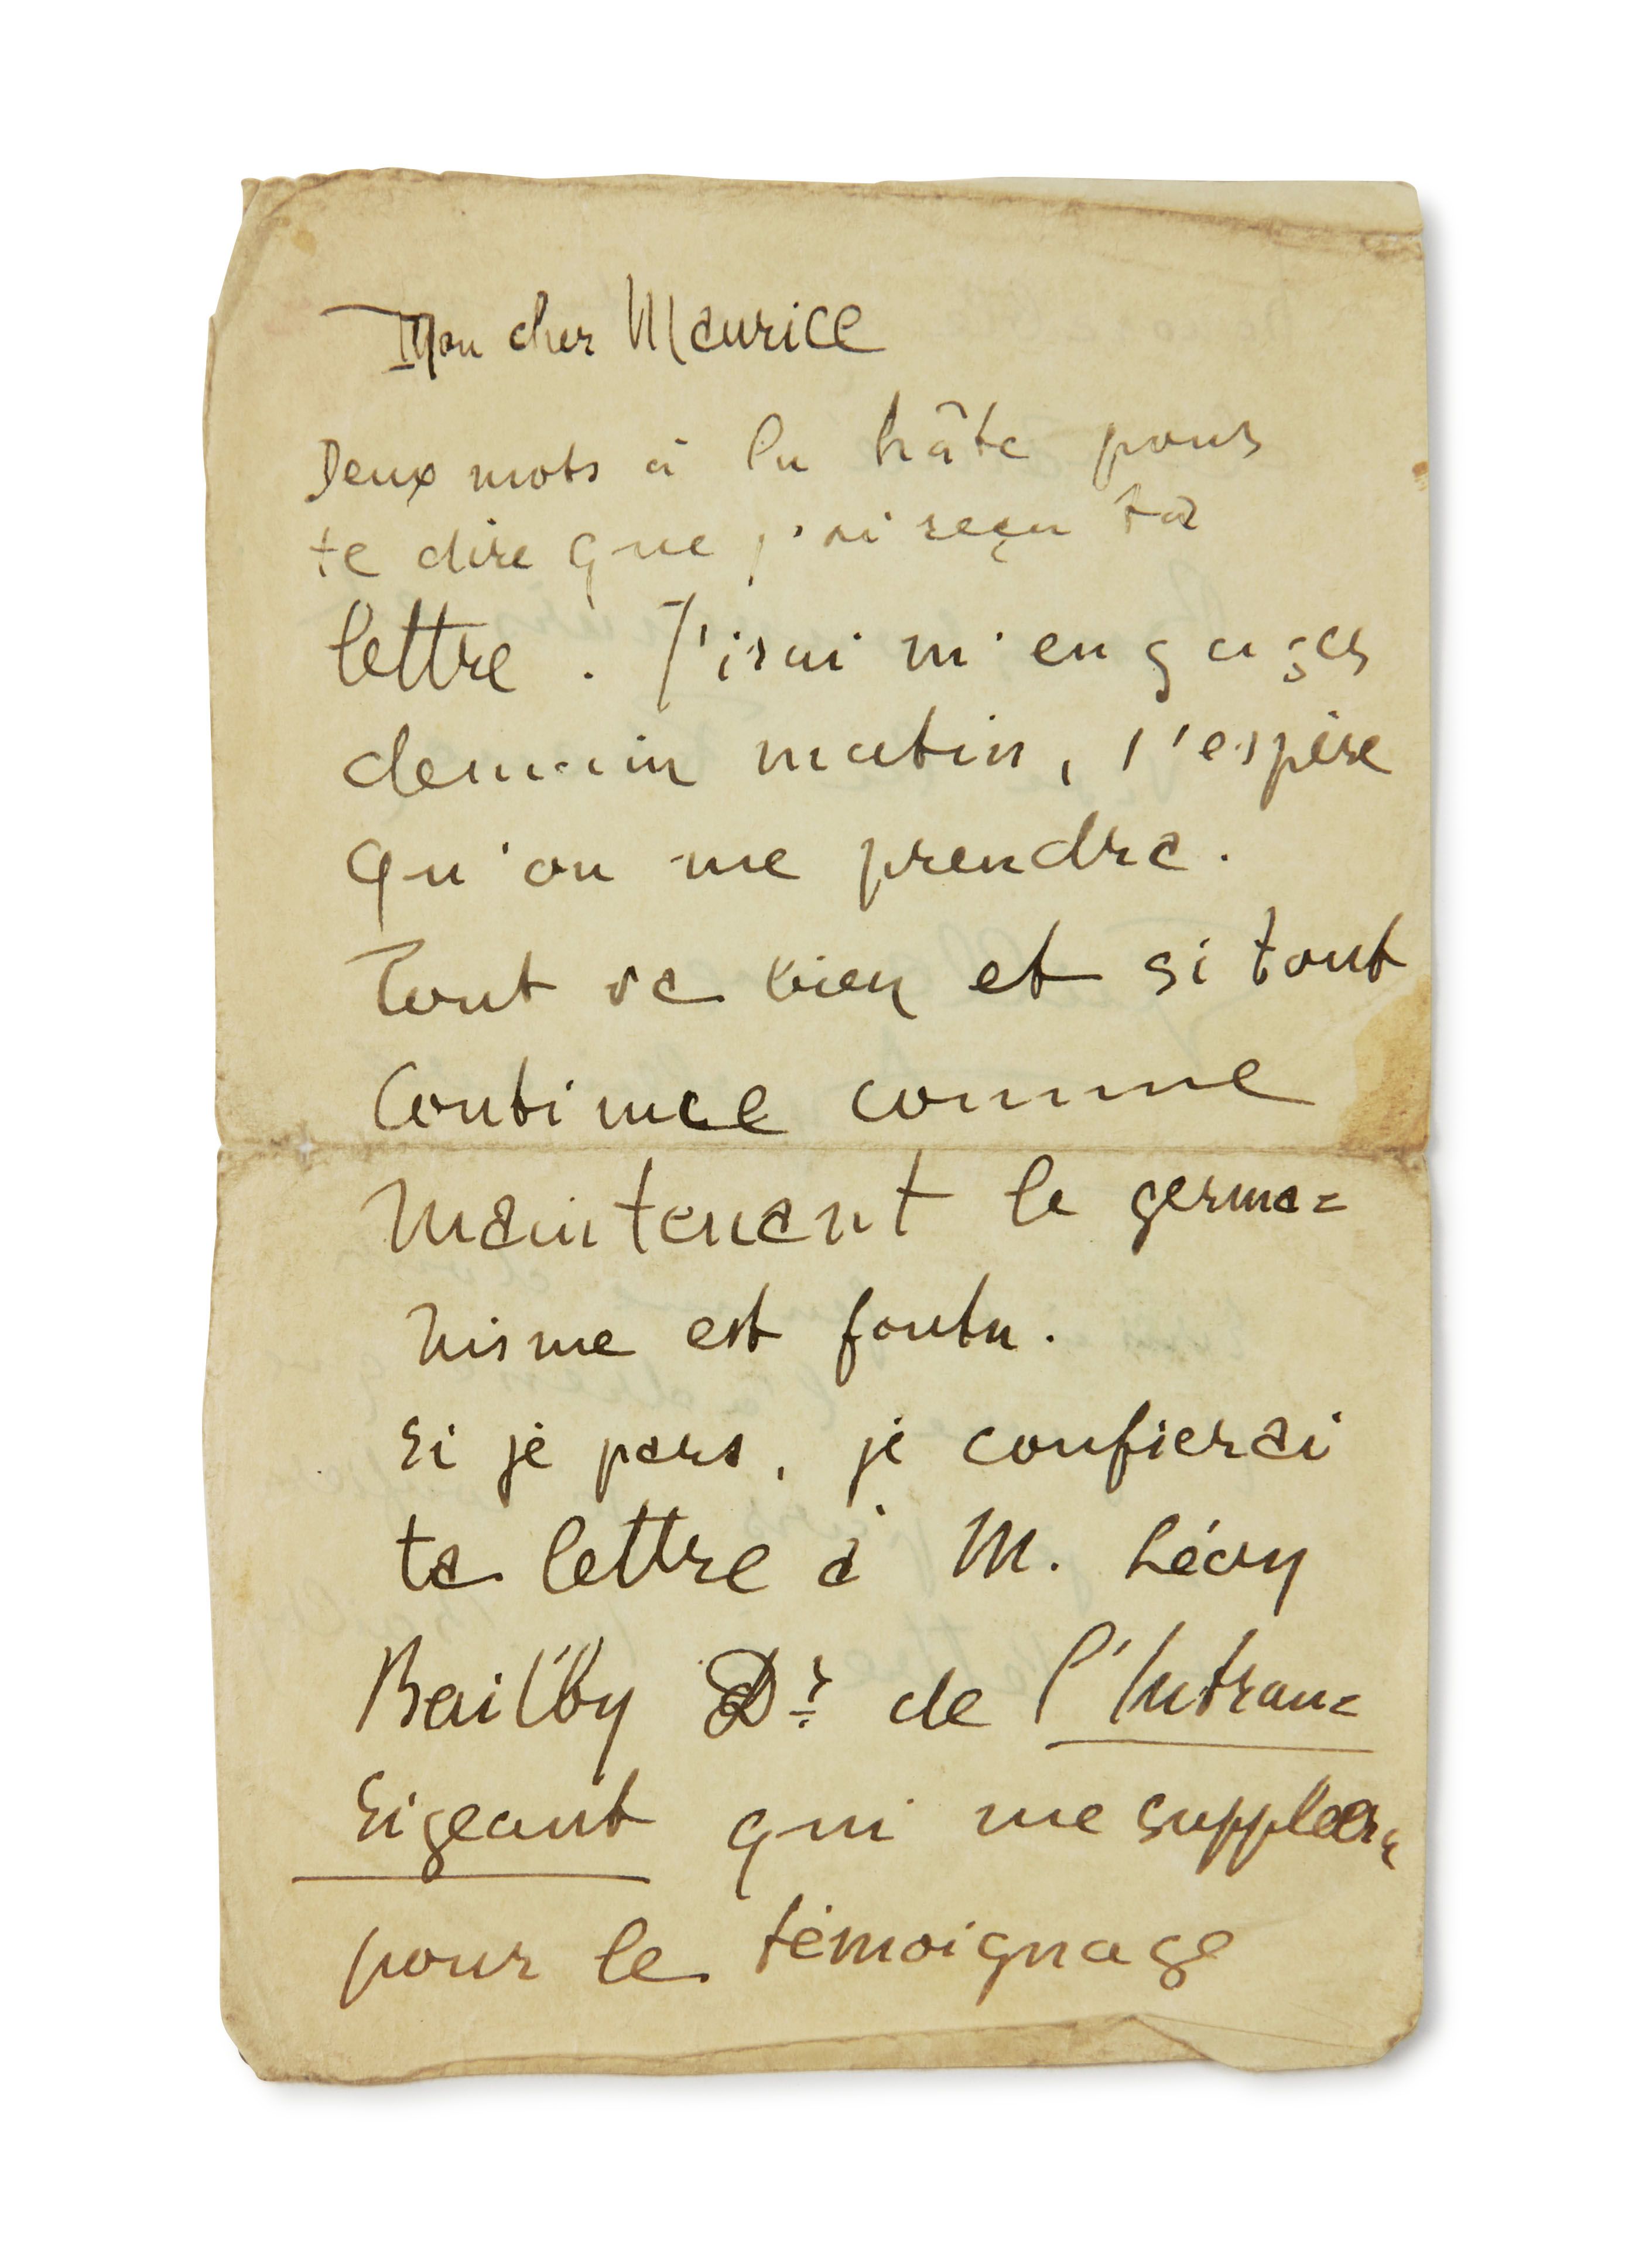 Mon cher Maurice
Deux mots à la hâte pour
te dire que j'ai reçu ta
lettre. J'irai m'engager
demain matin, j'espère
qu'on me prendra.
Tout va bien et si tout
continue comme
maintenant le germa=
nisme est foutu.
Si je pars, je confierai
ta lettre à M. Léon
Bailby Dr de l'Intran=
sigeant qui me suppléera
pour le témoignage